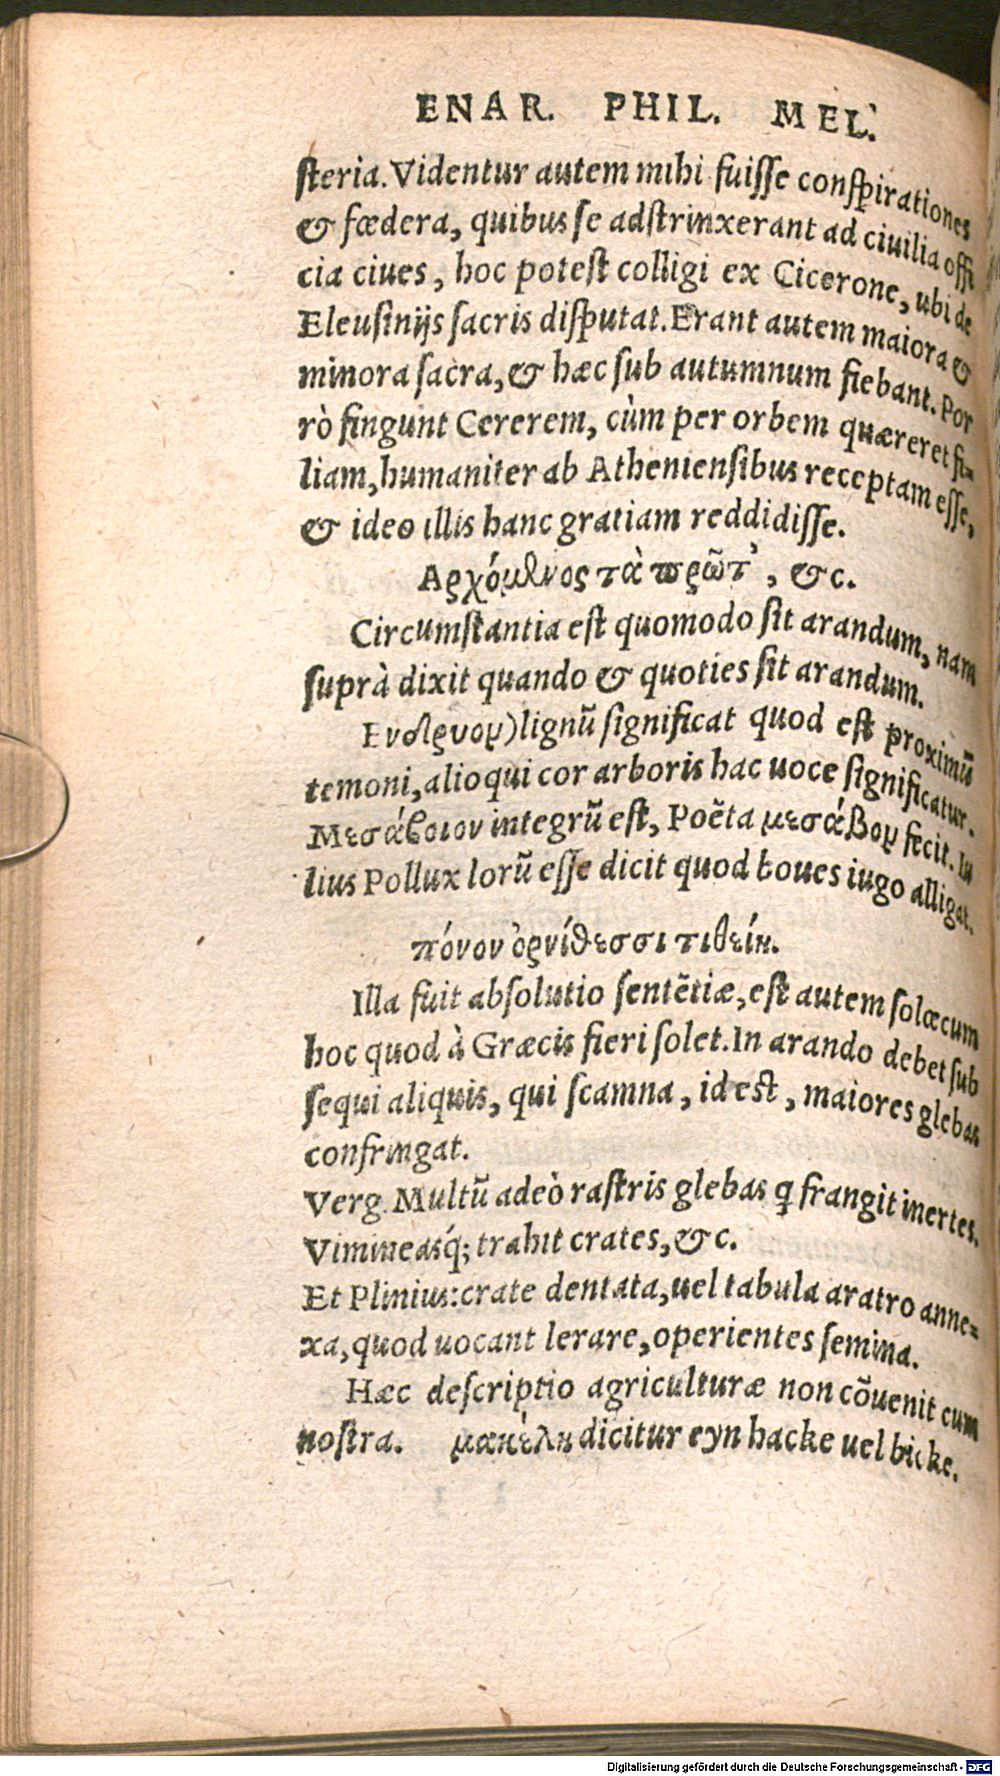 ENAR. PHIL. MEL.
ſteria. Videntur autem mihi fuiſſe conſpirationes
& fœdera, quibus ſe adſtrinxerant ad ciuilia offi
cia ciues, hoc poteſt colligi ex Cicerone, ubi de
Eleuſinijs ſacris diſputat. Erant autem maiora &
minora ſacra, & hæc ſub autumnum fiebant. Por
rò fingunt Cererem, cùm per orbem quæreret fi=
liam, humaniter ab Athenienſibus receptam eſſe,
& ideo illis hanc gratiam reddidiſſe.
Αρχόμενος τὰ πρῶτ', &c.
Circumſtantia eſt quomodo ſit arandum, nam
ſuprà dixit quando & quoties ſit arandum.
Ενδρυον) lignũ ſignificat quod eſt proximũ
temoni, alioqui cor arboris hac uoce ſignificatur.
Μεσάβοιον integrũ eſt, Poẽta μεσάβον fecit. Iu
lius Pollux lorũ eſſe dicit quod boues iugo alligat.
πόνον ὀρνίθεσσι τιθείη.
Illa fuit abſolutio ſentẽtiæ, eſt autem ſolœcum
hoc quod à Græcis fieri ſolet. In arando debet ſub
ſequi aliquis, qui ſcamna, id eſt, maiores glebas
confringat.
Verg. Multũ adeò raſtris glebas q frangit inertes.
Vimineasq́; trahit crates, &c.
Et Plinius: crate dentata, uel tabula aratro anne=
xa, quod uocant lerare, operientes ſemina.
Hæc deſcriptio agriculturæ non cõuenit cum
noſtra. μακέλη dicitur eyn hacke uel bicke.
Digitalisierung gefördert durch die Deutsche Forschungsgemeinschaft - DFG